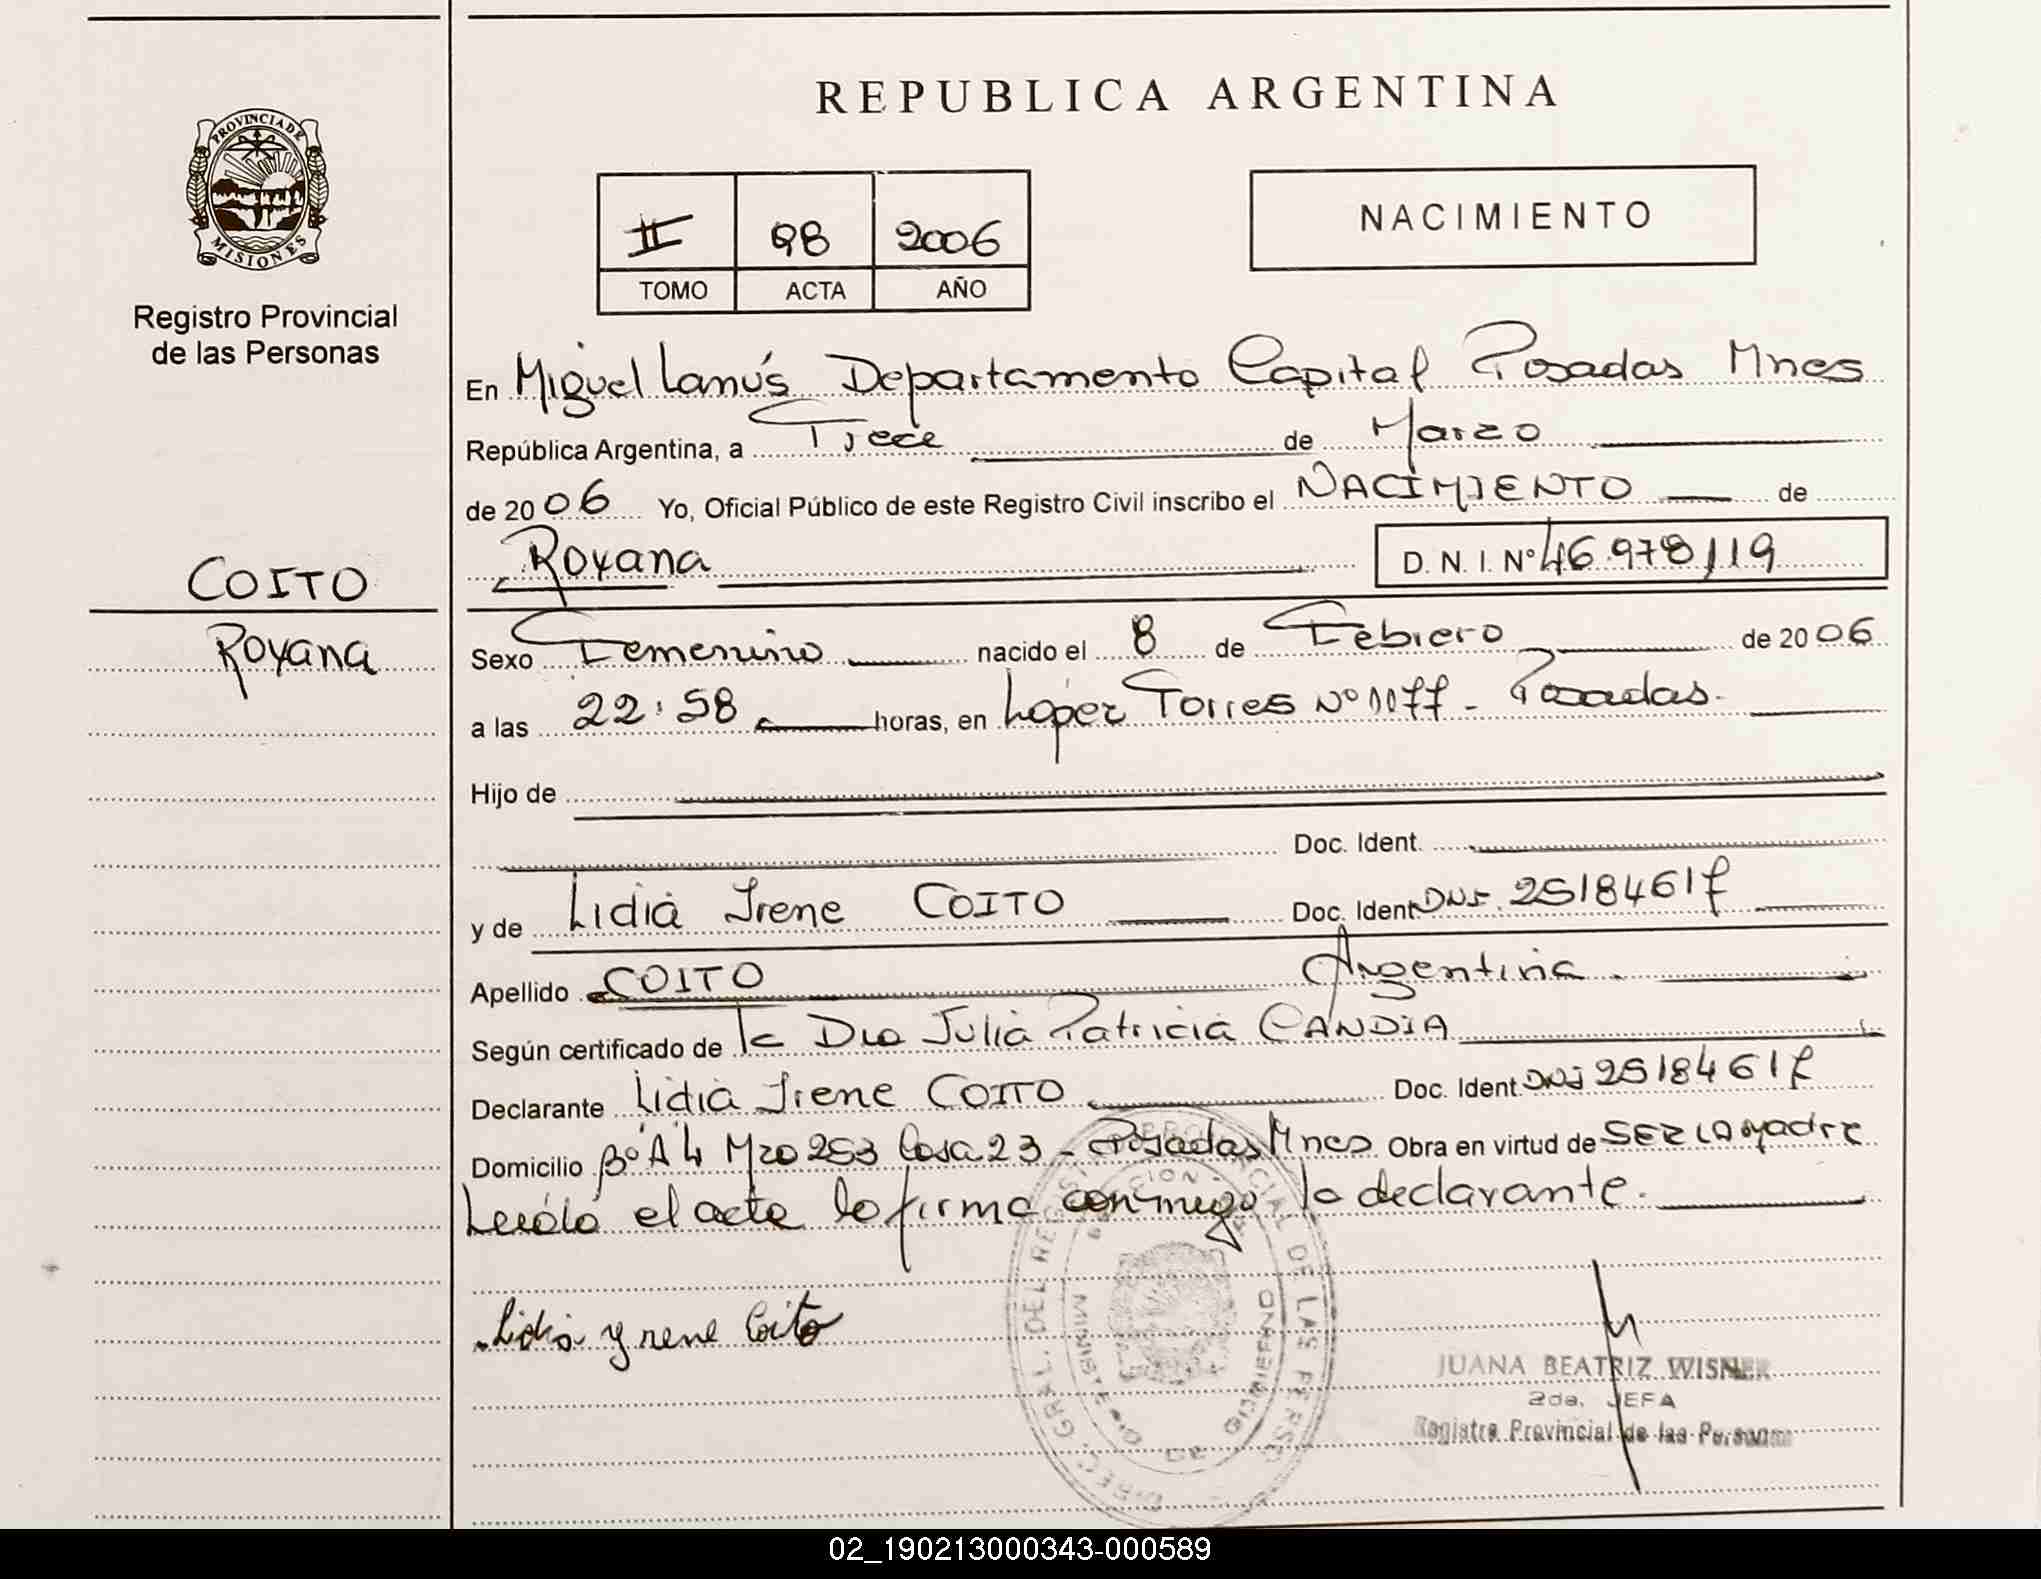 REPUBLICA ARGENTINA
PROVINCIA DE
MISIONES
Registro Provincial
de las Personas
II 98 2006
TOMO ACTA AÑO
NACIMIENTO
En Miguel Lanús Departamento Capital Posadas Mnes
República Argentina, a Trece de Marzo
de 2006 Yo, Oficial Público de este Registro Civil inscribo el NACIMIENTO de
Roxana D. N. I. Nº 46.978119
COITO
Roxana
Sexo Femenino nacido el 8 de Febrero de 2006
a las 22:58 horas, en López Torres Nº 1077 - Posadas.
Hijo de
Doc. Ident.
y de Lidia Irene COITO Doc. Ident DNI. 25184617
Apellido COITO Argentina.
Según certificado de la Dra Julia Patricia CANDIA
Declarante Lidia Irene COITO Doc. Ident. DNI 25184617
Domicilio Bº A4 Mza 253 Casa 23 - Posadas Mnes Obra en virtud de SER LA Madre
Leída el acta la firma conmigo la declarante.
Lidia Yrene Coito
DIREC. GRAL. DEL REGISTRO PROVINCIAL DE LAS PERSO
MINISTERIO DE GOBIERNO
JUANA BEATRIZ WISNER
2da. JEFA
Registro Provincial de las Personas
02_190213000343-000589